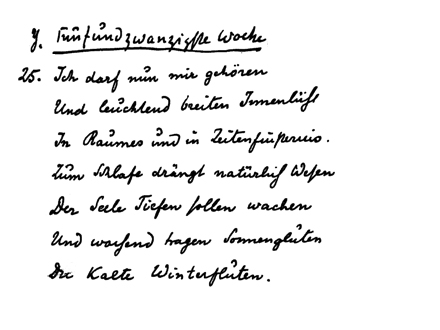 Y. Fünfundzwanzigste Woche
25. Ich darf nun mir gehören
Und leuchtend breiten Innenlicht
In Raumes und in Zeitenfinsternis.
Zum Schlafe drängt natürlich Wesen
Der Seele Tiefen sollen wachen
Und wachend tragen Sonnengluten
In kalte Winterfluten.